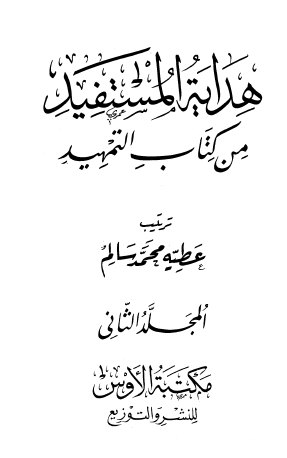 هِدَايَةُ المُسْتَفِيدِ
مِن كِتَابِ التَّمْهِيدِ
ترتيب
عَطِيّه مُحَمَّد سَالِم
المُجَلَّدُ الثَّانِي
مَكتَبَةُ الأَوْسِ
للنشر والتوزيع